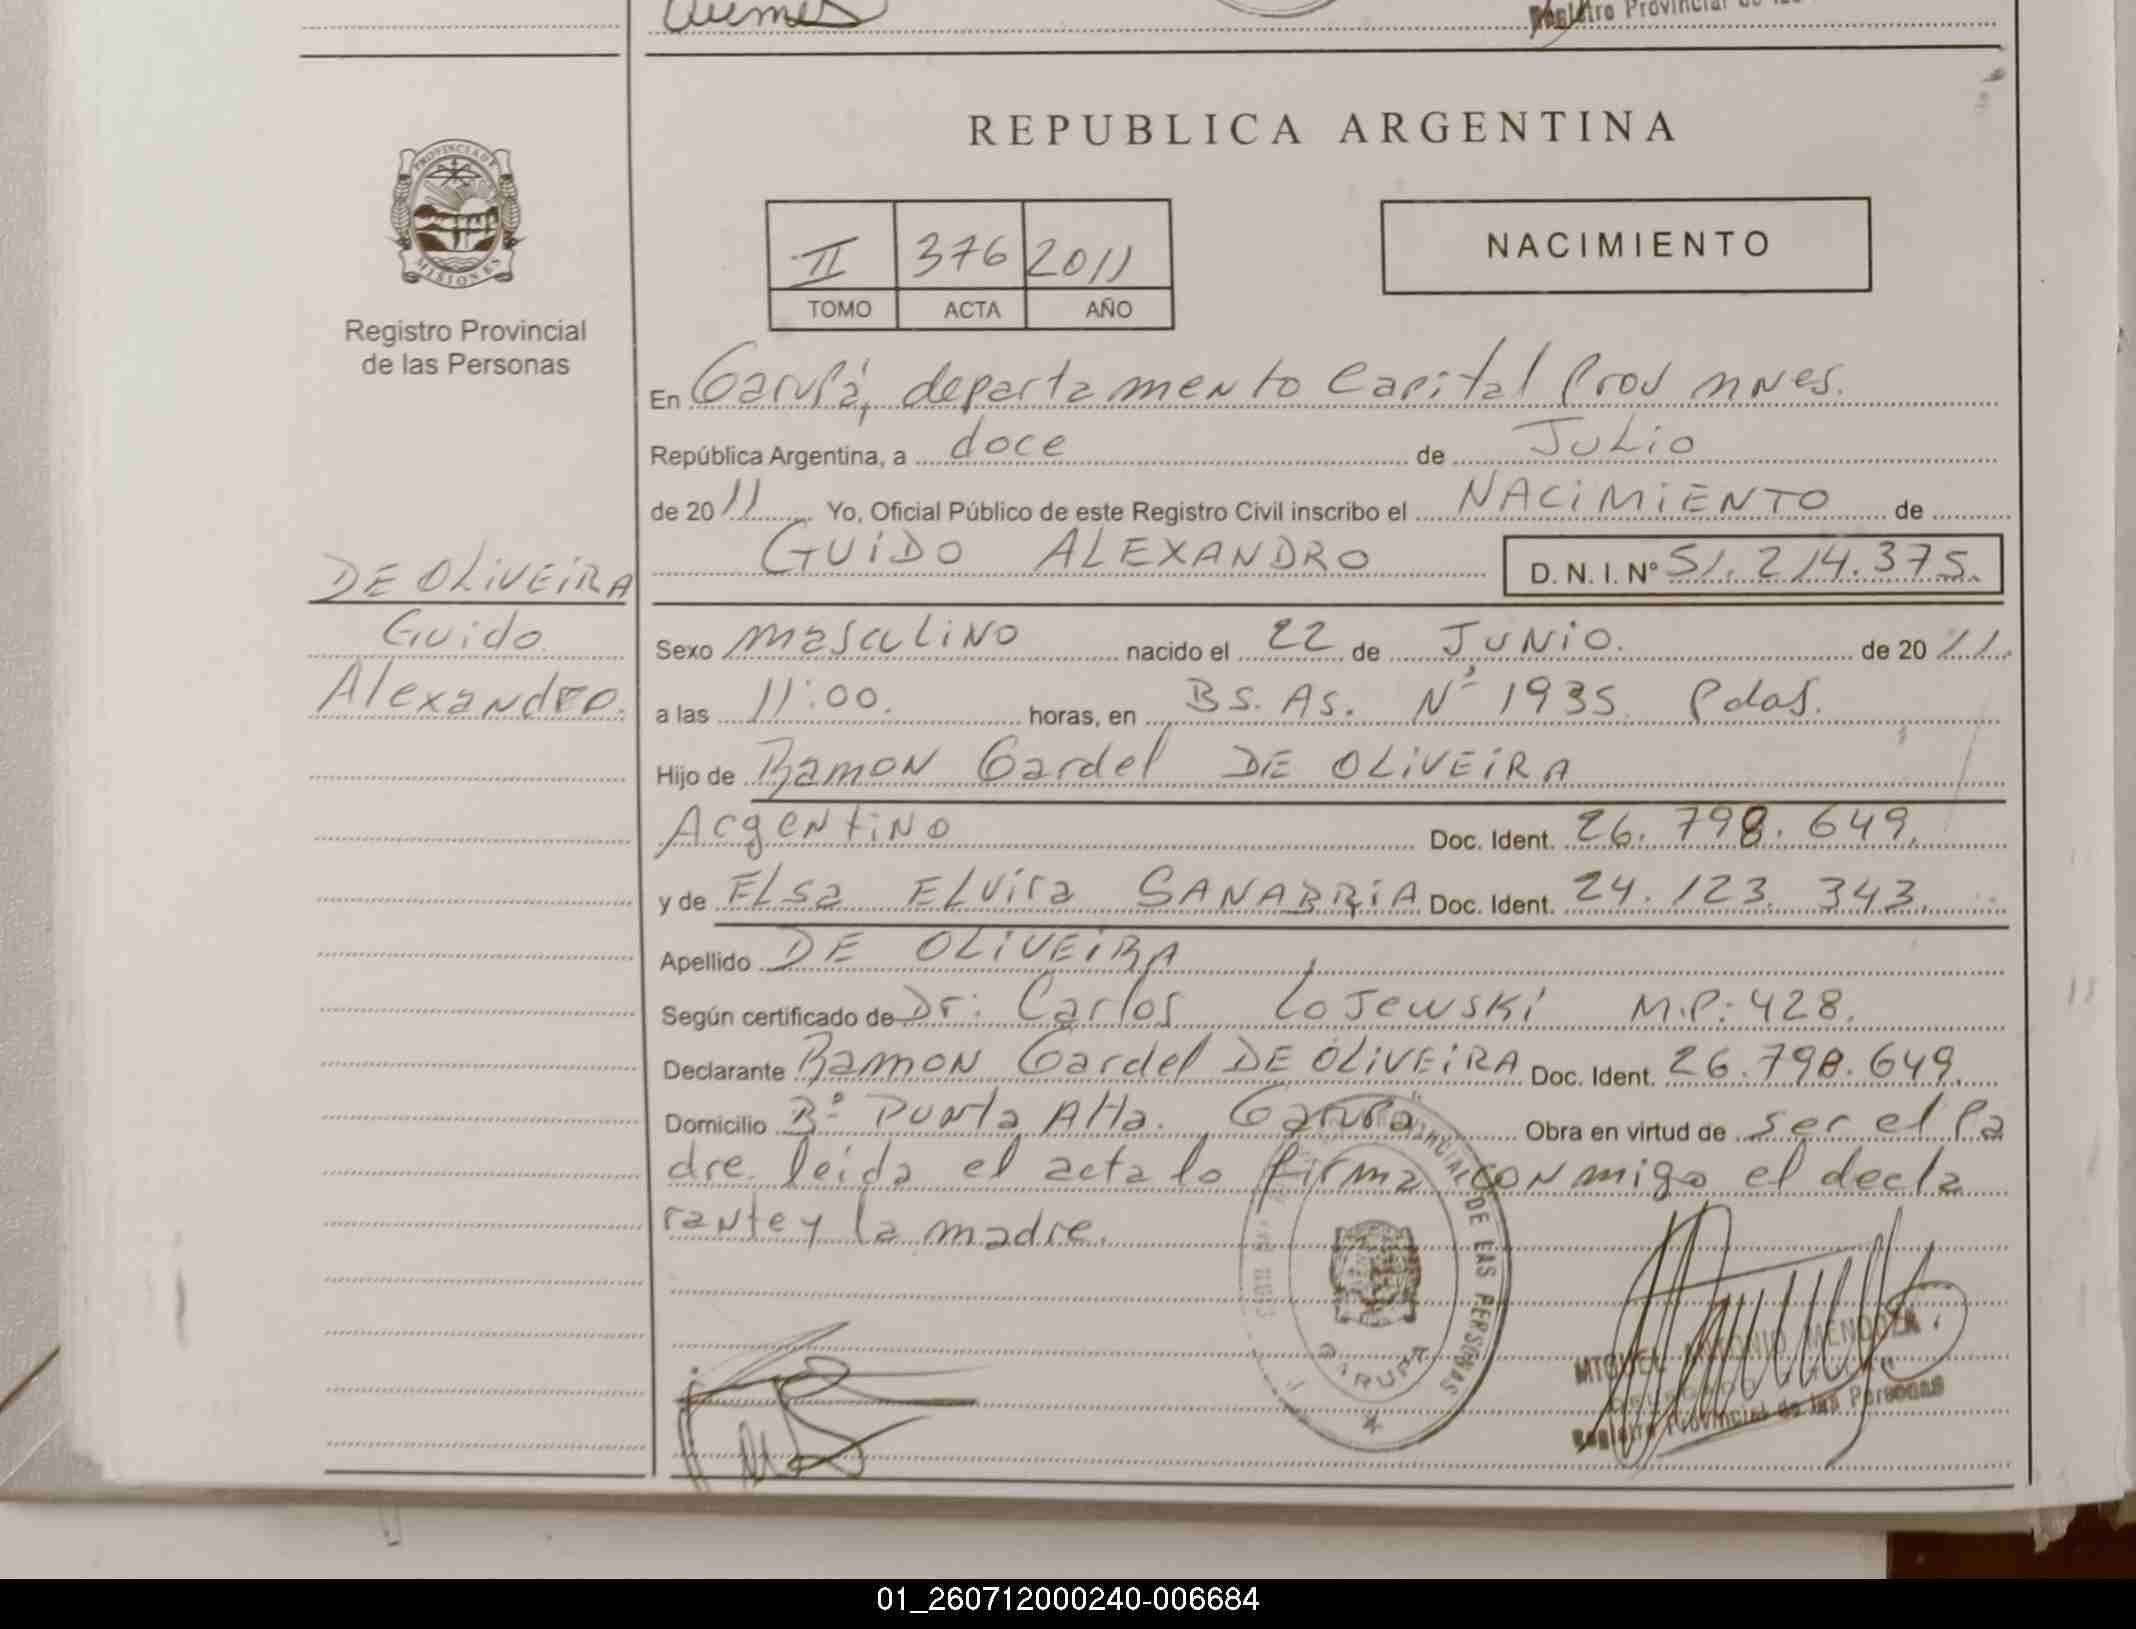 Registro Provincial de las
PROVINCIA DE
MISIONES
Registro Provincial
de las Personas
DE OLIVEIRA
Guido
Alexandro.
REPUBLICA ARGENTINA
II 376 2011
TOMO ACTA AÑO
NACIMIENTO
En Garupá, departamento Capital Prov mnes.
República Argentina, a doce de Julio
de 2011 Yo, Oficial Público de este Registro Civil inscribo el NACIMIENTO de
GUIDO ALEXANDRO D. N. I. Nº 51.214.375.
Sexo masculino nacido el 22 de JUNIO. de 2011.
a las 11:00. horas, en BS. AS. Nº 1935 Pdas.
Hijo de Ramon Gardel DE OLIVEIRA
Argentino Doc. Ident. 26.798.649.
y de ELsa ELvira SANABRIA Doc. Ident. 24.123.343.
Apellido DE OLIVEIRA
Según certificado de Dr: Carlos Lojewski M.P: 428.
Declarante Ramon Gardel DE OLIVEIRA Doc. Ident. 26.798.649.
Domicilio Bº Punta Alta. Garupa Obra en virtud de ser el Pa
dre. leida el acta lo firma conmigo el decla
rante y la madre.
DE LAS PERSONAS
GARUPA
MIGUEL ANTONIO MENDOZA
Registro Provincial de las Personas
01_260712000240-006684